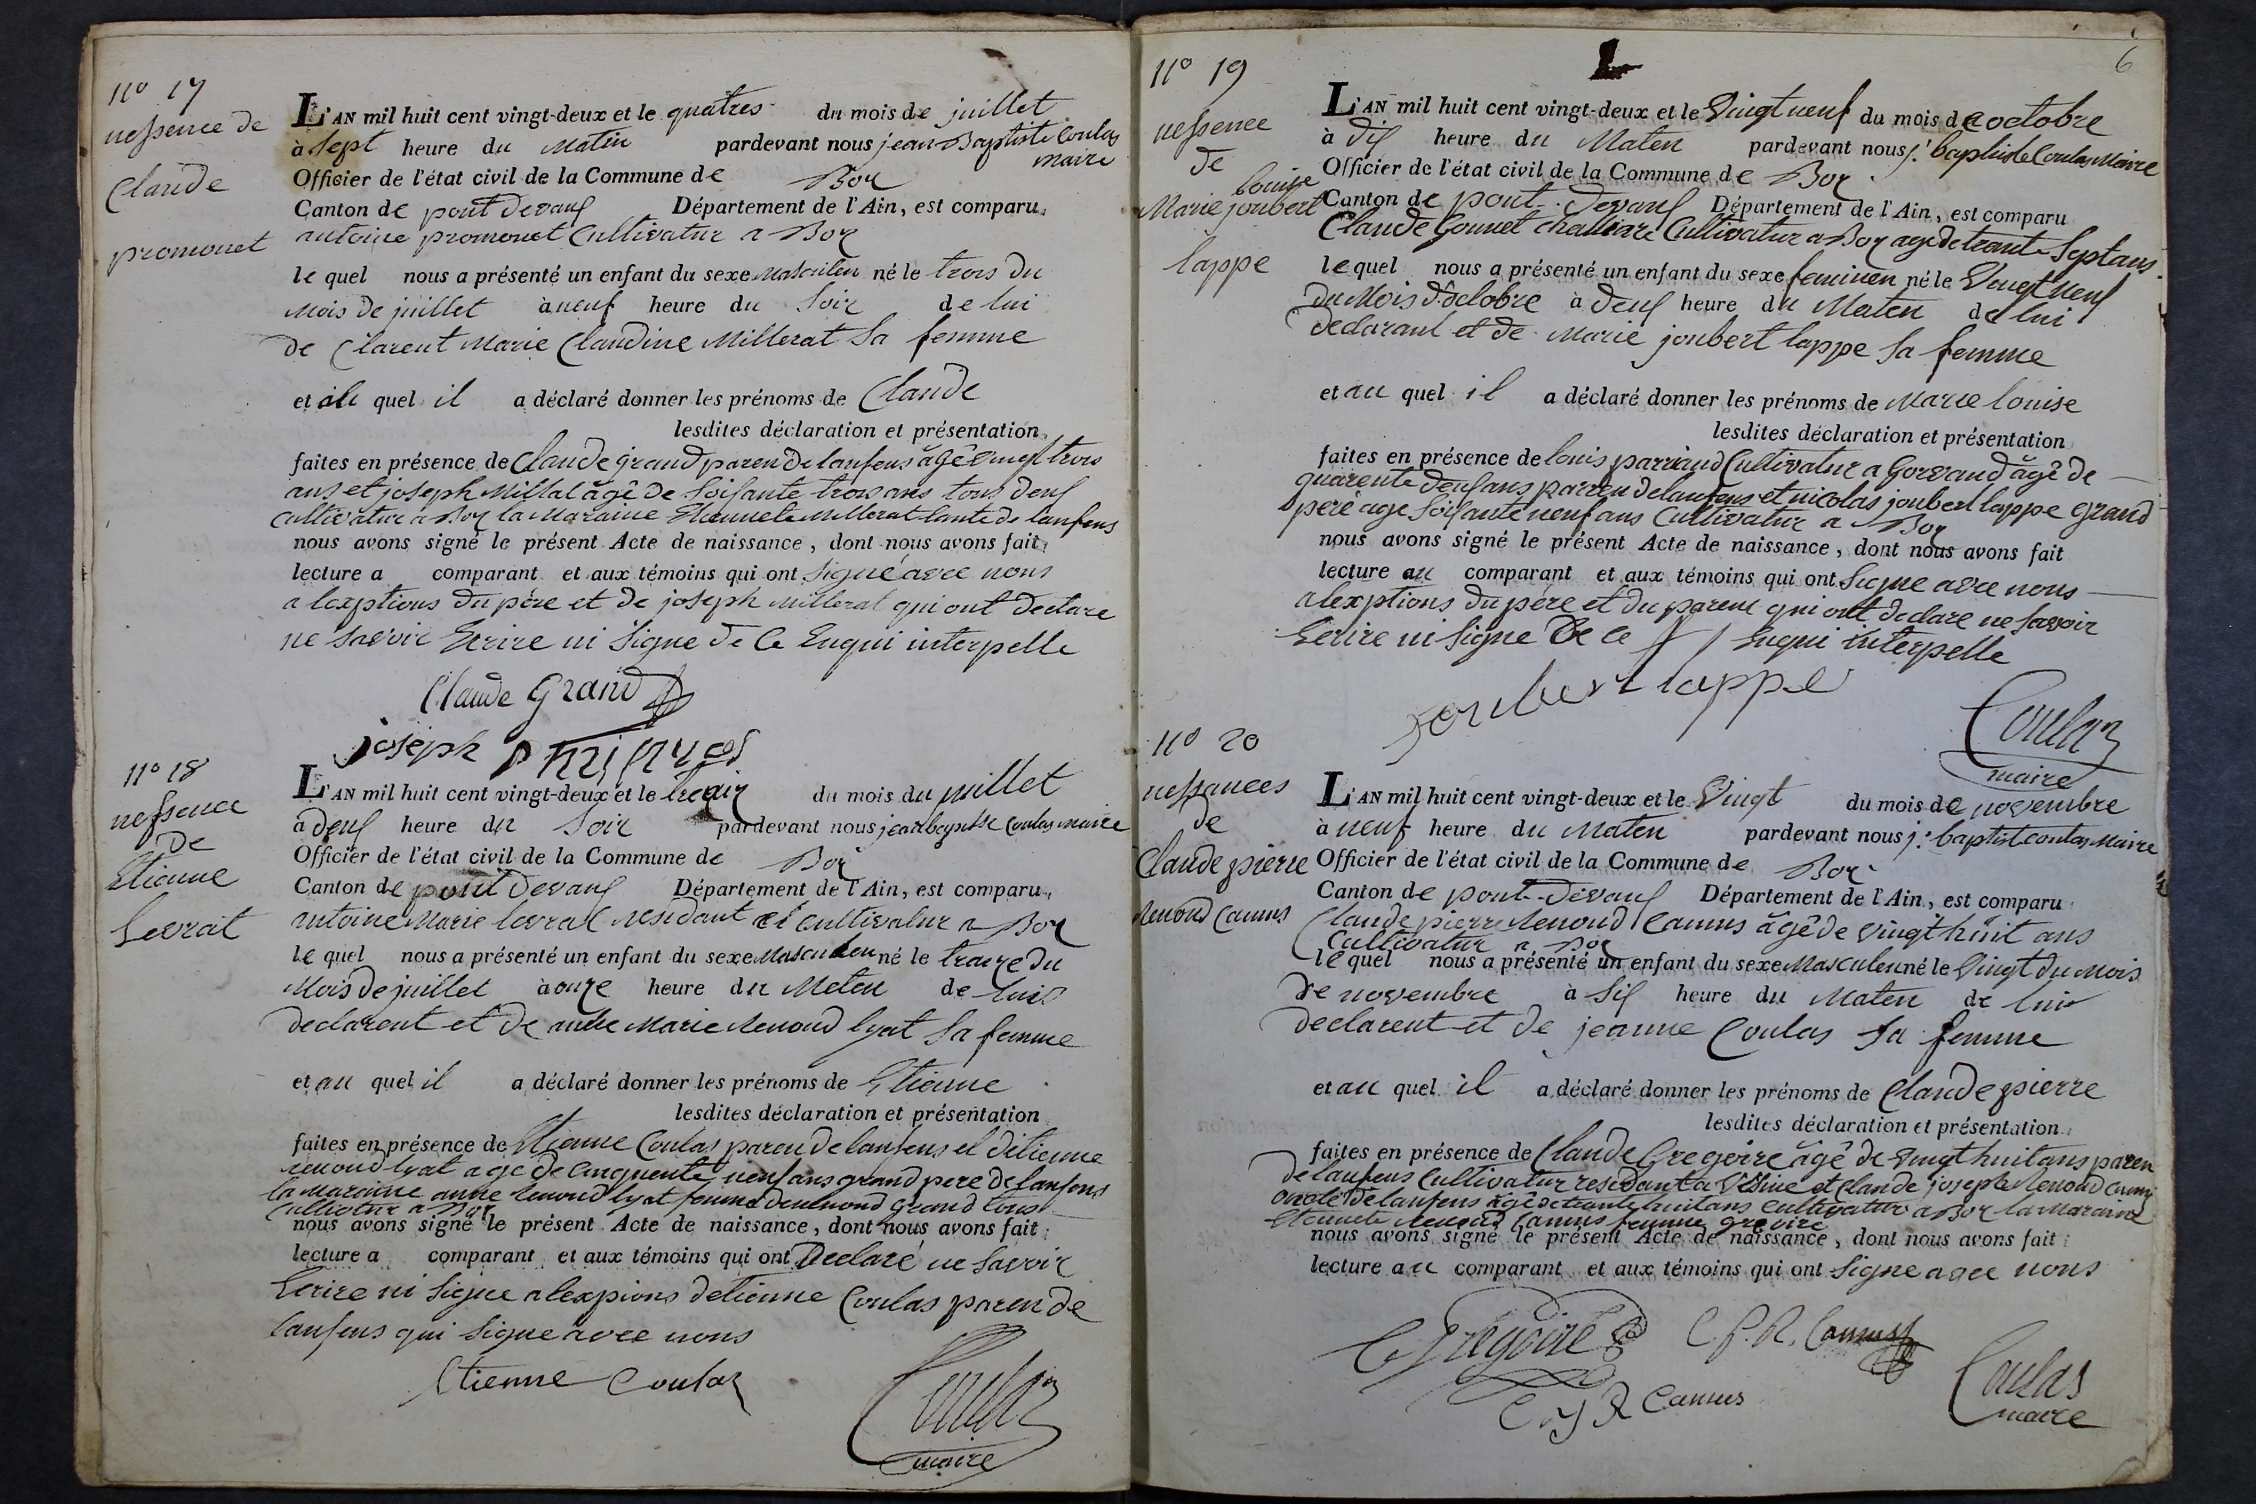 n.o 17
nessence de
Claude
promonet
L'AN mil huit cent vingt-deux et le quatres du mois de juillet
à Sept heure du Matin pardevant nous jean Baptiste Coulas
maire
Officier de l'état civil de la Commune de Boz
Canton de pont Devaux Département de l'Ain, est comparu
antoine promonet Cultivatur a Boz
le quel nous a présenté un enfant du sexe Masculen né le trois du
Mois de juillet à neuf heure du Soir de lui
de Clarent Marie Claudine Millerat Sa femme
et au quel il a déclaré donner les prénoms de Claude
lesdites déclaration et présentation
faites en présence de Claude grand paren de lanfens âgê vingt trois
ans et joseph Millat âgê de Soisante trois ans tous deux
Cultivatur a Boz la Maraine Etiennete Millerat tante de lanfens
nous avons signé le présent Acte de naissance, dont nous avons fait
lecture a comparant et aux témoins qui ont Signé avec nous
a lexptions du père et de joseph Millerat qui ont declare
ne Savoir Ecrire ni Signe de Ce Enqui interpelle
Claude Grand
joseph
n.o 18
nessence
De
Etienne
Levrat
L'AN mil huit cent vingt-deux et le du mois du juillet
a deux heure du Soir pardevant nous jean baptiste Coulas Maire
Officier de l'état civil de la Commune de Boz
Canton de pont Devaux Département de l'Ain, est comparu
antoine Marie levrat Residant et Cultivatur a Boz
le quel nous a présenté un enfant du sexe Masculen né le traize du
Mois de juillet à onze heure du Meten de luis
declarent et de anne Marie Renoud lyat Sa femme
et au quel il a déclaré donner les prénoms de Etienne
lesdites déclaration et présentation
faites en présence de Etienne Coulas paren de lanfens et d'etienne
renoud lyat age de Cinquente neuf ans grand pere de lanfens
la Maraine anne renoud lyat femme Grand tous
Cultivatur a Boz
nous avons signé le présent Acte de naissance, dont nous avons fait
lecture a comparant et aux témoins qui ont Declaré ne Savoir
Ecrire ni Signe a lexpions detienne Coulas paren de
lanfens qui Signe avec nous
Etienne Coulas
Coulas
maire
6
n.o 19
nessence
de
louise
Marie joubert
lappe
L'AN mil huit cent vingt-deux et le Vingt neuf du mois de octobre
à dix heure du Maten pardevant nous j. baptiste Coulas Maire
Officier de l'état civil de la Commune de Boz
Canton de pont Devaux Département de l'Ain, est comparu
Claude Gounet Cultivatur a Boz age de trante Sept ans
le quel nous a présenté un enfant du sexe feminen né le Vengt neuf
du Mois d'octobre à deux heure du Maten de lui
declarant et de Marie joubert lappe Sa femme
et au quel il a déclaré donner les prénoms de Marie louise
lesdites déclaration et présentation
faites en présence de louis parriaud Cultivatur a Gorvaud âgê de
quarente deux ans parren de lanfens et nicolas joubert lappe grand
père age Soisante neuf ans Cultivatur a Boz
nous avons signé le présent Acte de naissance, dont nous avons fait
lecture au comparant et aux témoins qui ont Signe avec nous
alexptions du père et du paren qui ont declare ne Savoir
Ecrire ni Signe De Ce Enqui interpelle
joubert lappe
Coulas
maire
n.o 20
nessances
de
Claude pierre
Renoud Camus
L'AN mil huit cent vingt-deux et le Vingt du mois de novembre
à neuf heure du Maten pardevant nous j. baptist coulas Maire
Officier de l'état civil de la Commune de Boz
Canton de pont Devaux Département de l'Ain, est comparu
Claude pierre Renoud Camus âgê de vingt huit ans
Cultivatur a Boz
le quel nous a présenté un enfant du sexe Masculen né le Vingt du Mois
de novembre à Six heure du Maten de luis
declarent et de jeanne Coulas Sa femme
et au quel il a déclaré donner les prénoms de Claude pierre
lesdites déclaration et présentation
faites en présence de Claude Gregoire âgê de vingt huit ans paren
de lanfens Cultivatur residant a Vesine et Claude joseph Renoud Camus
oncle de lanfens âgê de trante huit ans Cultivatur a Boz la Maraine
Etiennete Renoud Camus femme
nous avons signé le présent Acte de naissance, dont nous avons fait
lecture au comparant et aux témoins qui ont Signe avec nous
C Gregoire C. P. R. Camus
C J R Camus
Coulas
maire